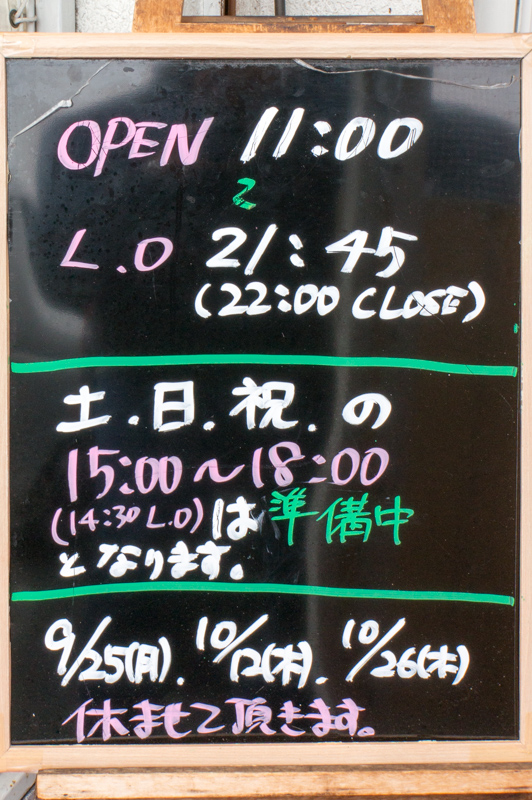 OPEN 11:00
〜
L.O 21:45
(22:00 CLOSE)
土.日.祝.の
15:00〜18:00
(14:30 L.O)は準備中
となります。
9/25(月). 10/12(木). 10/26(木)
休ませて頂きます。